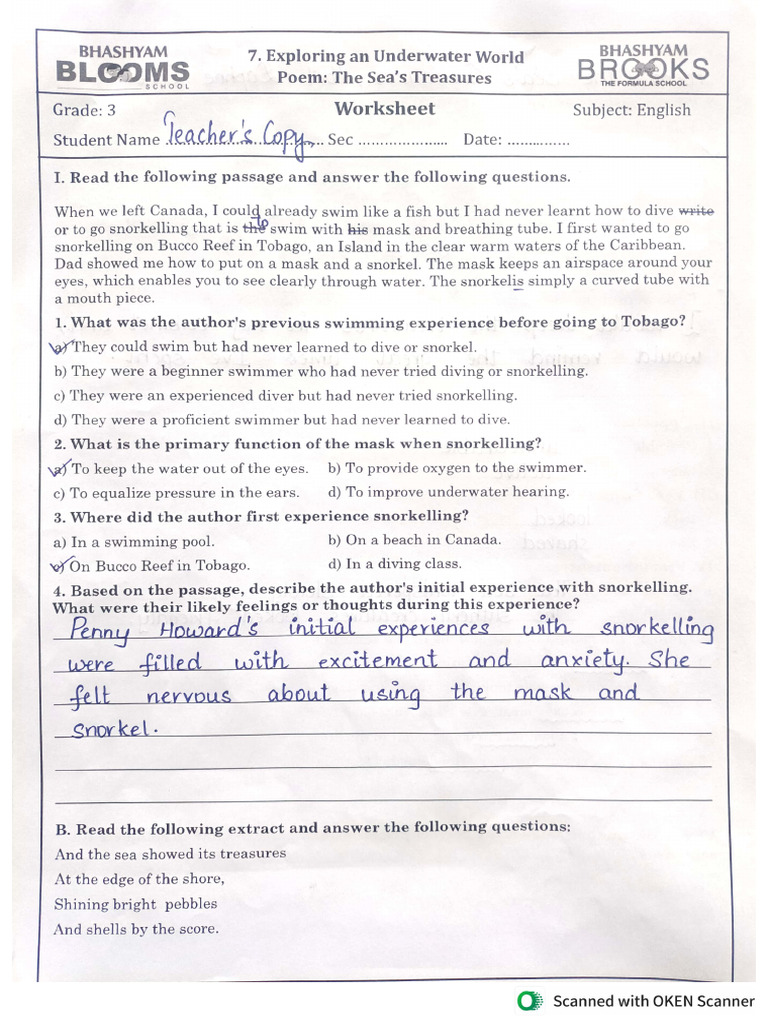 BHASHYAM
BLOOMS
SCHOOL
7. Exploring an Underwater World
Poem: The Sea's Treasures
BHASHYAM
BROOKS
THE FORMULA SCHOOL
Grade: 3
Worksheet
Subject: English
Student Name Teacher's Copy Sec ..................... Date: ...............
I. Read the following passage and answer the following questions.
When we left Canada, I could already swim like a fish but I had never learnt how to dive write
or to go snorkelling that is the to swim with his mask and breathing tube. I first wanted to go
snorkelling on Bucco Reef in Tobago, an Island in the clear warm waters of the Caribbean.
Dad showed me how to put on a mask and a snorkel. The mask keeps an airspace around your
eyes, which enables you to see clearly through water. The snorkelis simply a curved tube with
a mouth piece.
1. What was the author's previous swimming experience before going to Tobago?
a) They could swim but had never learned to dive or snorkel.
b) They were a beginner swimmer who had never tried diving or snorkelling.
c) They were an experienced diver but had never tried snorkelling.
d) They were a proficient swimmer but had never learned to dive.
2. What is the primary function of the mask when snorkelling?
a) To keep the water out of the eyes. b) To provide oxygen to the swimmer.
c) To equalize pressure in the ears. d) To improve underwater hearing.
3. Where did the author first experience snorkelling?
a) In a swimming pool. b) On a beach in Canada.
c) On Bucco Reef in Tobago. d) In a diving class.
4. Based on the passage, describe the author's initial experience with snorkelling.
What were their likely feelings or thoughts during this experience?
Penny Howard's initial experiences with snorkelling
were filled with excitement and anxiety. She
felt nervous about using the mask and
snorkel.
B. Read the following extract and answer the following questions:
And the sea showed its treasures
At the edge of the shore,
Shining bright pebbles
And shells by the score.
Scanned with OKEN Scanner